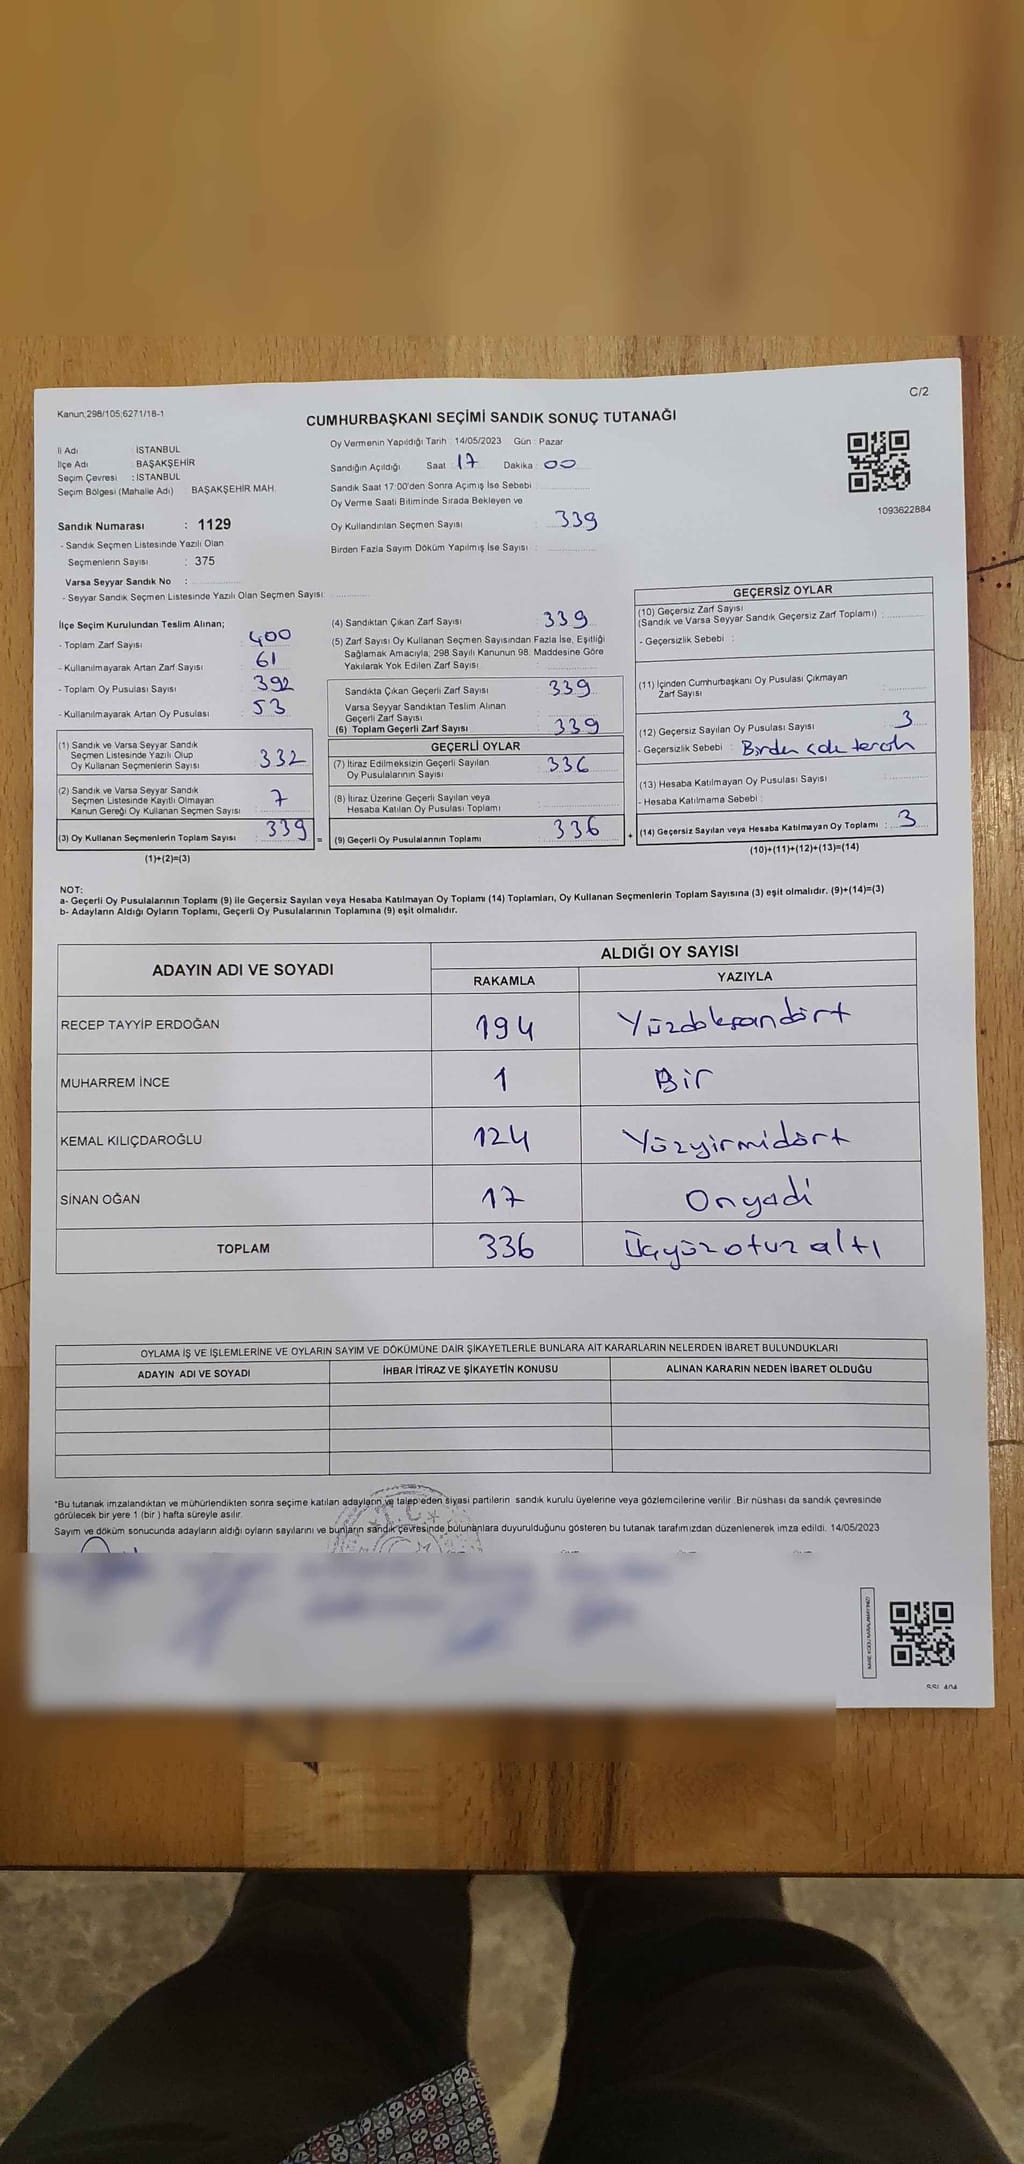 C/2
Kanun;298/105;6271/18-1
CUMHURBAŞKANI SEÇİMİ SANDIK SONUÇ TUTANAĞI
İl Adı : İSTANBUL
İlçe Adı : BAŞAKŞEHİR
Seçim Çevresi : İSTANBUL
Seçim Bölgesi (Mahalle Adı) BAŞAKŞEHİR MAH.
Sandık Numarası : 1129
- Sandık Seçmen Listesinde Yazılı Olan
Seçmenlerin Sayısı : 375
Varsa Seyyar Sandık No :
- Seyyar Sandık Seçmen Listesinde Yazılı Olan Seçmen Sayısı:
Oy Vermenin Yapıldığı Tarih : 14/05/2023 Gün : Pazar
Sandığın Açıldığı Saat : 17 Dakika : 00
Sandık Saat 17:00'den Sonra Açımış İse Sebebi :
Oy Verme Saati Bitiminde Sırada Bekleyen ve
Oy Kullandırılan Seçmen Sayısı : 339
Birden Fazla Sayım Döküm Yapılmış İse Sayısı :
1093622884
İlçe Seçim Kurulundan Teslim Alınan;
- Toplam Zarf Sayısı : 400
- Kullanılmayarak Artan Zarf Sayısı : 61
- Toplam Oy Pusulası Sayısı : 392
- Kullanılmayarak Artan Oy Pusulası : 53
(1) Sandık ve Varsa Seyyar Sandık
Seçmen Listesinde Yazılı Olup
Oy Kullanan Seçmenlerin Sayısı : 332
(2) Sandık ve Varsa Seyyar Sandık
Seçmen Listesinde Kayıtlı Olmayan
Kanun Gereği Oy Kullanan Seçmen Sayısı : 7
(3) Oy Kullanan Seçmenlerin Toplam Sayısı : 339 =
(1)+(2)=(3)
(4) Sandıktan Çıkan Zarf Sayısı : 339
(5) Zarf Sayısı Oy Kullanan Seçmen Sayısından Fazla İse, Eşitliği
Sağlamak Amacıyla; 298 Sayılı Kanunun 98. Maddesine Göre
Yakılarak Yok Edilen Zarf Sayısı :
Sandıkta Çıkan Geçerli Zarf Sayısı : 339
Varsa Seyyar Sandıktan Teslim Alınan
Geçerli Zarf Sayısı :
(6) Toplam Geçerli Zarf Sayısı : 339
GEÇERLİ OYLAR
(7) İtiraz Edilmeksizin Geçerli Sayılan
Oy Pusulalarının Sayısı : 336
(8) İtiraz Üzerine Geçerli Sayılan veya
Hesaba Katılan Oy Pusulası Toplamı :
(9) Geçerli Oy Pusulalarının Toplamı : 336 +
GEÇERSİZ OYLAR
(10) Geçersiz Zarf Sayısı
(Sandık ve Varsa Seyyar Sandık Geçersiz Zarf Toplamı) :
- Geçersizlik Sebebi :
(11) İçinden Cumhurbaşkanı Oy Pusulası Çıkmayan
Zarf Sayısı :
(12) Geçersiz Sayılan Oy Pusulası Sayısı : 3
- Geçersizlik Sebebi : Birden
(13) Hesaba Katılmayan Oy Pusulası Sayısı :
- Hesaba Katılmama Sebebi :
(14) Geçersiz Sayılan veya Hesaba Katılmayan Oy Toplamı : 3
(10)+(11)+(12)+(13)=(14)
NOT:
a- Geçerli Oy Pusulalarının Toplamı (9) ile Geçersiz Sayılan veya Hesaba Katılmayan Oy Toplamı (14) Toplamları, Oy Kullanan Seçmenlerin Toplam Sayısına (3) eşit olmalıdır. (9)+(14)=(3)
b- Adayların Aldığı Oyların Toplamı, Geçerli Oy Pusulalarının Toplamına (9) eşit olmalıdır.
ADAYIN ADI VE SOYADI
ALDIĞI OY SAYISI
RAKAMLA YAZIYLA
RECEP TAYYİP ERDOĞAN 194 Yüzdoksandört
MUHARREM İNCE 1 Bir
KEMAL KILIÇDAROĞLU 124 Yüzyirmidört
SİNAN OĞAN 17 Onyedi
TOPLAM 336 Üçyüzotuzaltı
OYLAMA İŞ VE İŞLEMLERİNE VE OYLARIN SAYIM VE DÖKÜMÜNE DAİR ŞİKAYETLERLE BUNLARA AİT KARARLARIN NELERDEN İBARET BULUNDUKLARI
ADAYIN ADI VE SOYADI İHBAR İTİRAZ VE ŞİKAYETİN KONUSU ALINAN KARARIN NEDEN İBARET OLDUĞU
*Bu tutanak imzalandıktan ve mühürlendikten sonra seçime katılan adayların ve talep eden siyasi partilerin sandık kurulu üyelerine veya gözlemcilerine verilir. Bir nüshası da sandık çevresinde
görülecek bir yere 1 (bir ) hafta süreyle asılır.
Sayım ve döküm sonucunda adayların aldığı oyların sayılarını ve bunların sandık çevresinde bulunanlara duyurulduğunu gösteren bu tutanak tarafımızdan düzenlenerek imza edildi. 14/05/2023
T.C.